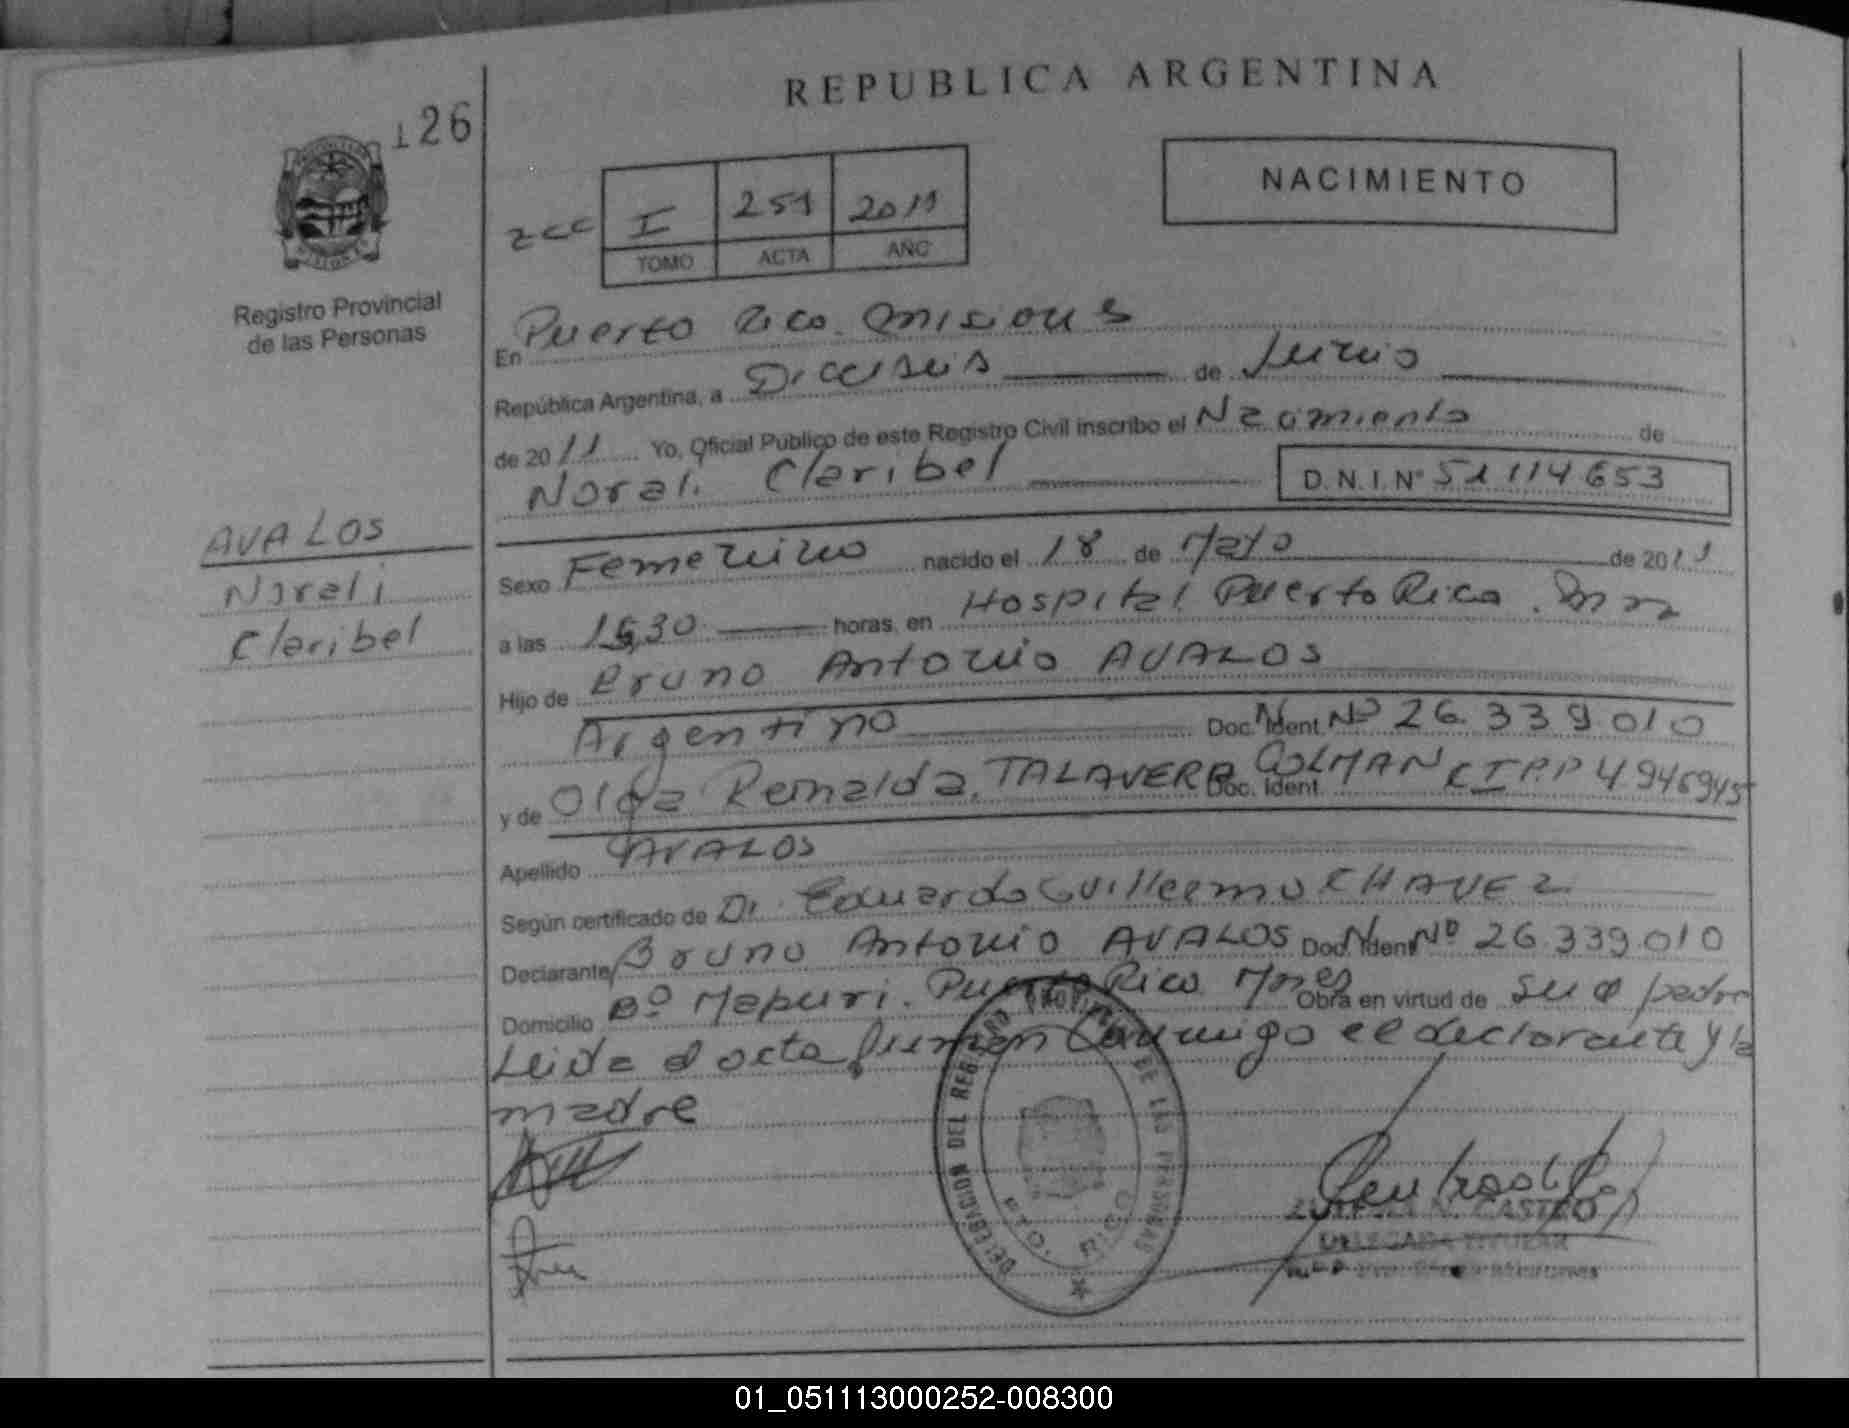 REPUBLICA ARGENTINA
126
NACIMIENTO
I 251 2011
TOMO ACTA AÑO
Registro Provincial
de las Personas
En Puerto Rico Misiones
República Argentina, a Dieciseis de Junio
de 2011 Yo, Oficial Público de este Registro Civil inscribo el Nacimiento de
Norali Claribel D.N.I.Nº 51114653
AVALOS
Norali
Claribel
Sexo Femenino nacido el 18 de Mayo de 2011
a las 15,30 horas, en Hospital Puerto Rico. Mnes
Hijo de Bruno Antonio AVALOS
Argentino Doc. N Ident. Nº 26.339.010
y de Olga Remalda, TALAVERA COLMAN Doc. Ident. CIPP 4946945
Apellido AVALOS
Según certificado de Dr. Eduardo Guillermo CHAVEZ
Declarante Bruno Antonio AVALOS Doc. N Ident. Nº 26.339.010
Domicilio Bº Mapuri. Puerto Rico Mnes Obra en virtud de su padre
Leida el acta firman conmigo el declarante y la
madre
DELEGACION DEL REGISTRO PROVINCIAL DE LAS PERSONAS
PTO. RICO
N. CASTRO
DELEGADA TITULAR
01_051113000252-008300